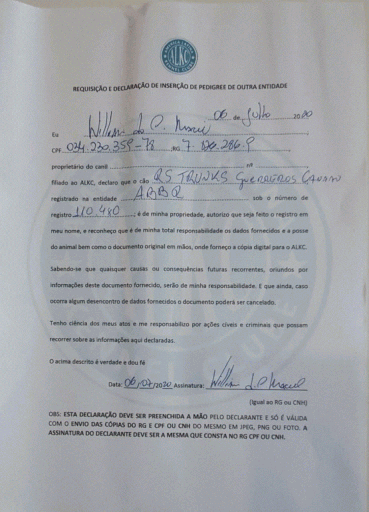 ALKC
REQUISIÇÃO E DECLARAÇÃO DE INSERÇÃO DE PEDIGREE DE OUTRA ENTIDADE
06 de Julho 2020
Eu Willian do P. Maciel
CPF 034.230.359-78 RG 7.
proprietário do canil Nº
filiado ao ALKC, declaro que o cão RS TRUNKS GUERREIROS CANINO
registrado na entidade sob o número de
registro 110.440, é de minha propriedade, autorizo que seja feito o registro em
meu nome, e reconheço que é de minha total responsabilidade os dados fornecidos e a posse
do animal bem como o documento original em mãos, onde forneço a cópia digital para o ALKC.
Sabendo-se que quaisquer causas ou consequências futuras recorrentes, oriundos por
informações deste documento fornecido, serão de minha responsabilidade. E que ainda, caso
ocorra algum desencontro de dados fornecidos o documento poderá ser cancelado.
Tenho ciência dos meus atos e me responsabilizo por ações cíveis e criminais que possam
recorrer sobre as informações aqui declaradas.
O acima descrito é verdade e dou fé
Data: 06/07/2020 Assinatura:
(Igual ao RG ou CNH)
OBS: ESTA DECLARAÇÃO DEVE SER PREENCHIDA A MÃO PELO DECLARANTE E SÓ É VÁLIDA
COM O ENVIO DAS CÓPIAS DO RG E CPF OU CNH DO MESMO EM JPEG, PNG OU FOTO. A
ASSINATURA DO DECLARANTE DEVE SER A MESMA QUE CONSTA NO RG CPF OU CNH.